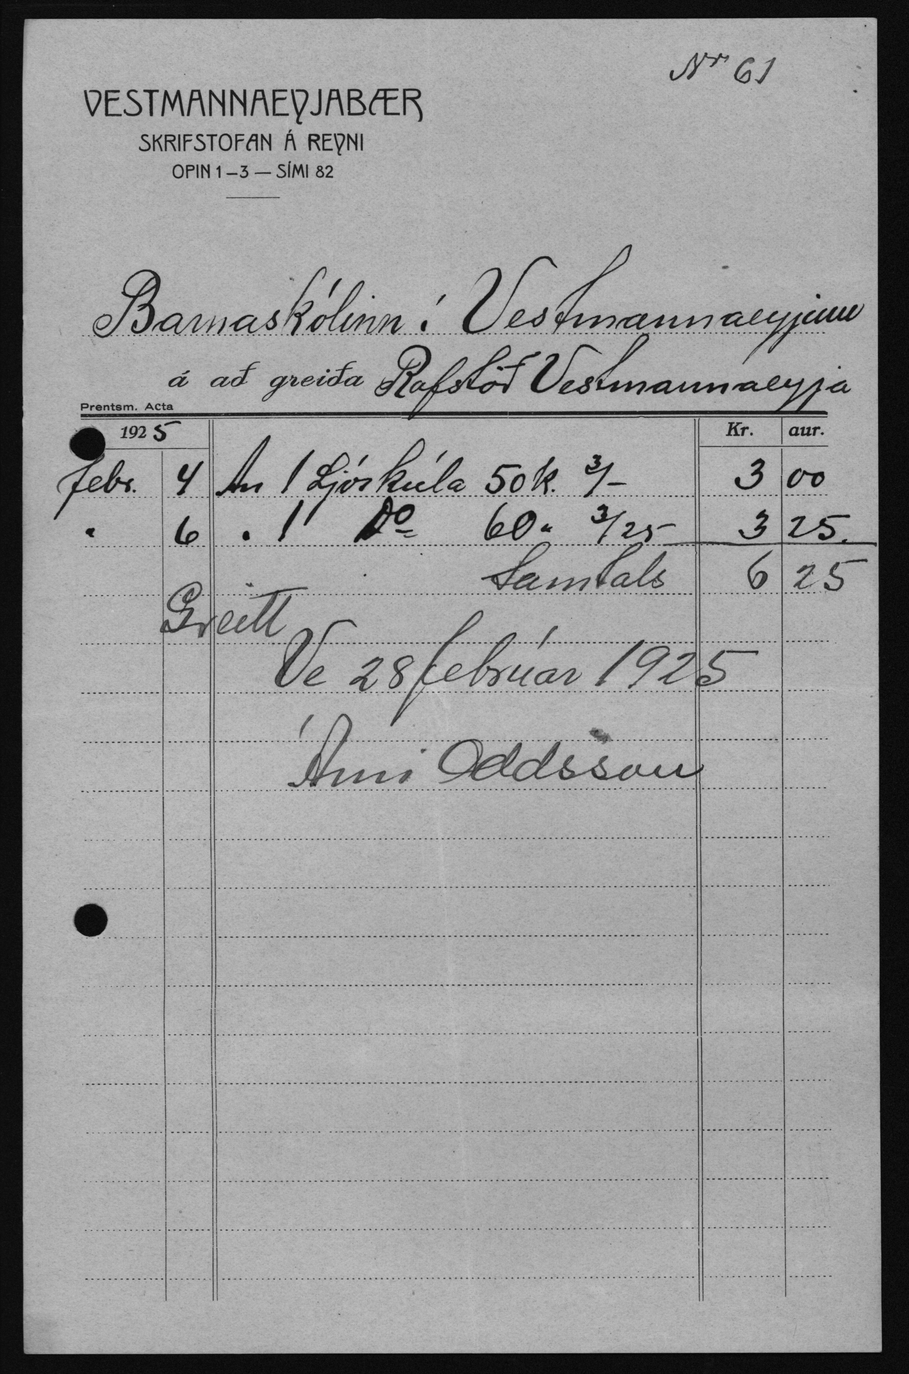 Nr 61
VESTMANNAEYJABÆR
SKRIFSTOFAN Á REYNI
OPIN 1–3 — SÍMI 82
Barnaskólinn í Vestmannaeyjum
á að greiða Rafstöð Vestmannaeyja
Prentsm. Acta
1925 Kr. aur.
febr. 4 An 1 Ljóskúla 50 k. 3/– 3 00
" 6 " 1 Do 60 " 3/25 3 25.
Samtals 6 25
Greitt
Ve 28 febrúar 1925
Árni Oddsson